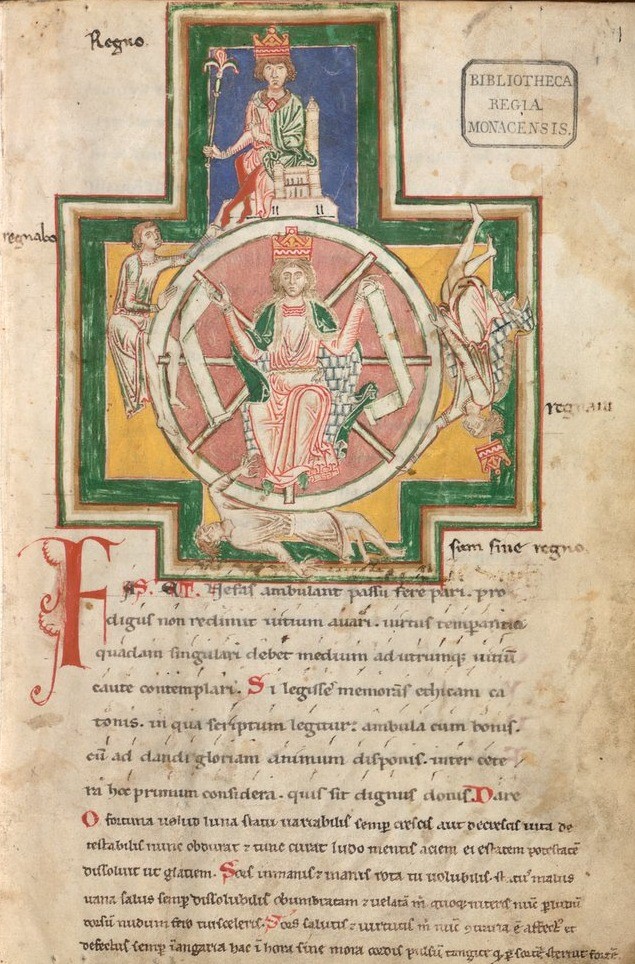 Regno.
BIBLIOTHECA
REGIA
MONACENSIS.
regnabo
regnaui
sum sine regno.
FAS. ET. Nefas ambulant passu fere pari. pro
digus non redimit uitium auari. uirtus temperantia
quadam singulari debet medium ad utrumq; uitiū
caute contemplari. Si legisse memorās ethicam ca
tonis. in qua scriptum legitur: ambula cum bonis.
cū ad dandi gloriam animum disponis. inter cete
ra hoc primum considera. quis sit dignus donis. Dare
O fortuna uelud luna statu uariabilis semp crescis aut decrescis uita de
testabilis nunc obdurat & tunc curat ludo mentis aciem egestatem potestatē
dissoluit ut glaciem. Sors inmanis & inanis rota tu uolubilis statꝰ malus
uana salus semp dissolubilis obumbratam & uelatā m quoq; niteris nūc p ludū
dorsū nudum fero tui sceleris. Sors salutis & uirtutis m nūc ꝯtraria ē affectꝰ et
defectus semp ī angaria hac ī hora sine mora cordis pulsū tangite